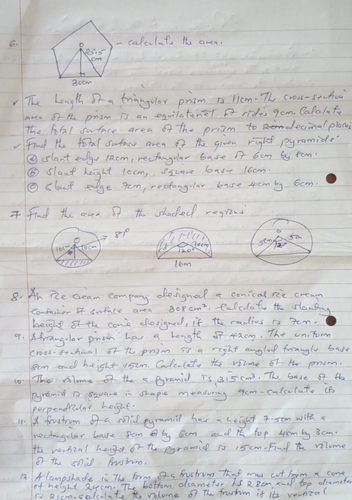 6.
O
25.5
cm
30cm
- calculate the area.
The length of a triangular prism is 11cm. The cross-section
area of the prism is an equilateral of sides 9cm. Calculate
the total surface area of the prism to decimal places
Find the total surface area of the given right pyramids.
a slant edge 12cm, rectangular base of 6cm by 8cm.
b slant height 10cm, square base 16cm.
c slant edge 7cm, rectangular base 4cm by 6cm.
7. Find the area of the shaded regions
10cm
8. An ice cream company designed a conical ice cream
container of surface area 308cm². Calculate the slanting
height of the cone designed, if the radius is 7cm.
9. A triangular prism has a length of 42cm. The uniform
cross-sectional of the prism is a right angled triangle base
8cm and height 15cm. Calculate the volume of the prism.
10. The volume of the a pyramid is 315cm³. The base of the
pyramid is square in shape measuring 9cm - calculate its
perpendicular height.
11. A frustum of a solid pyramid has a height 7.5cm with a
rectangular base 8cm by 6cm and the top 4cm by 3cm.
the vertical height of the pyramid is 15cm. Find the volume
of the solid frustum.
12. A lampshade in the form of a frustrum that was cut from a cone
of height 24cm. The bottom diameter is and top diameter
is 21cm - calculate the volume of the frustum if its vertical